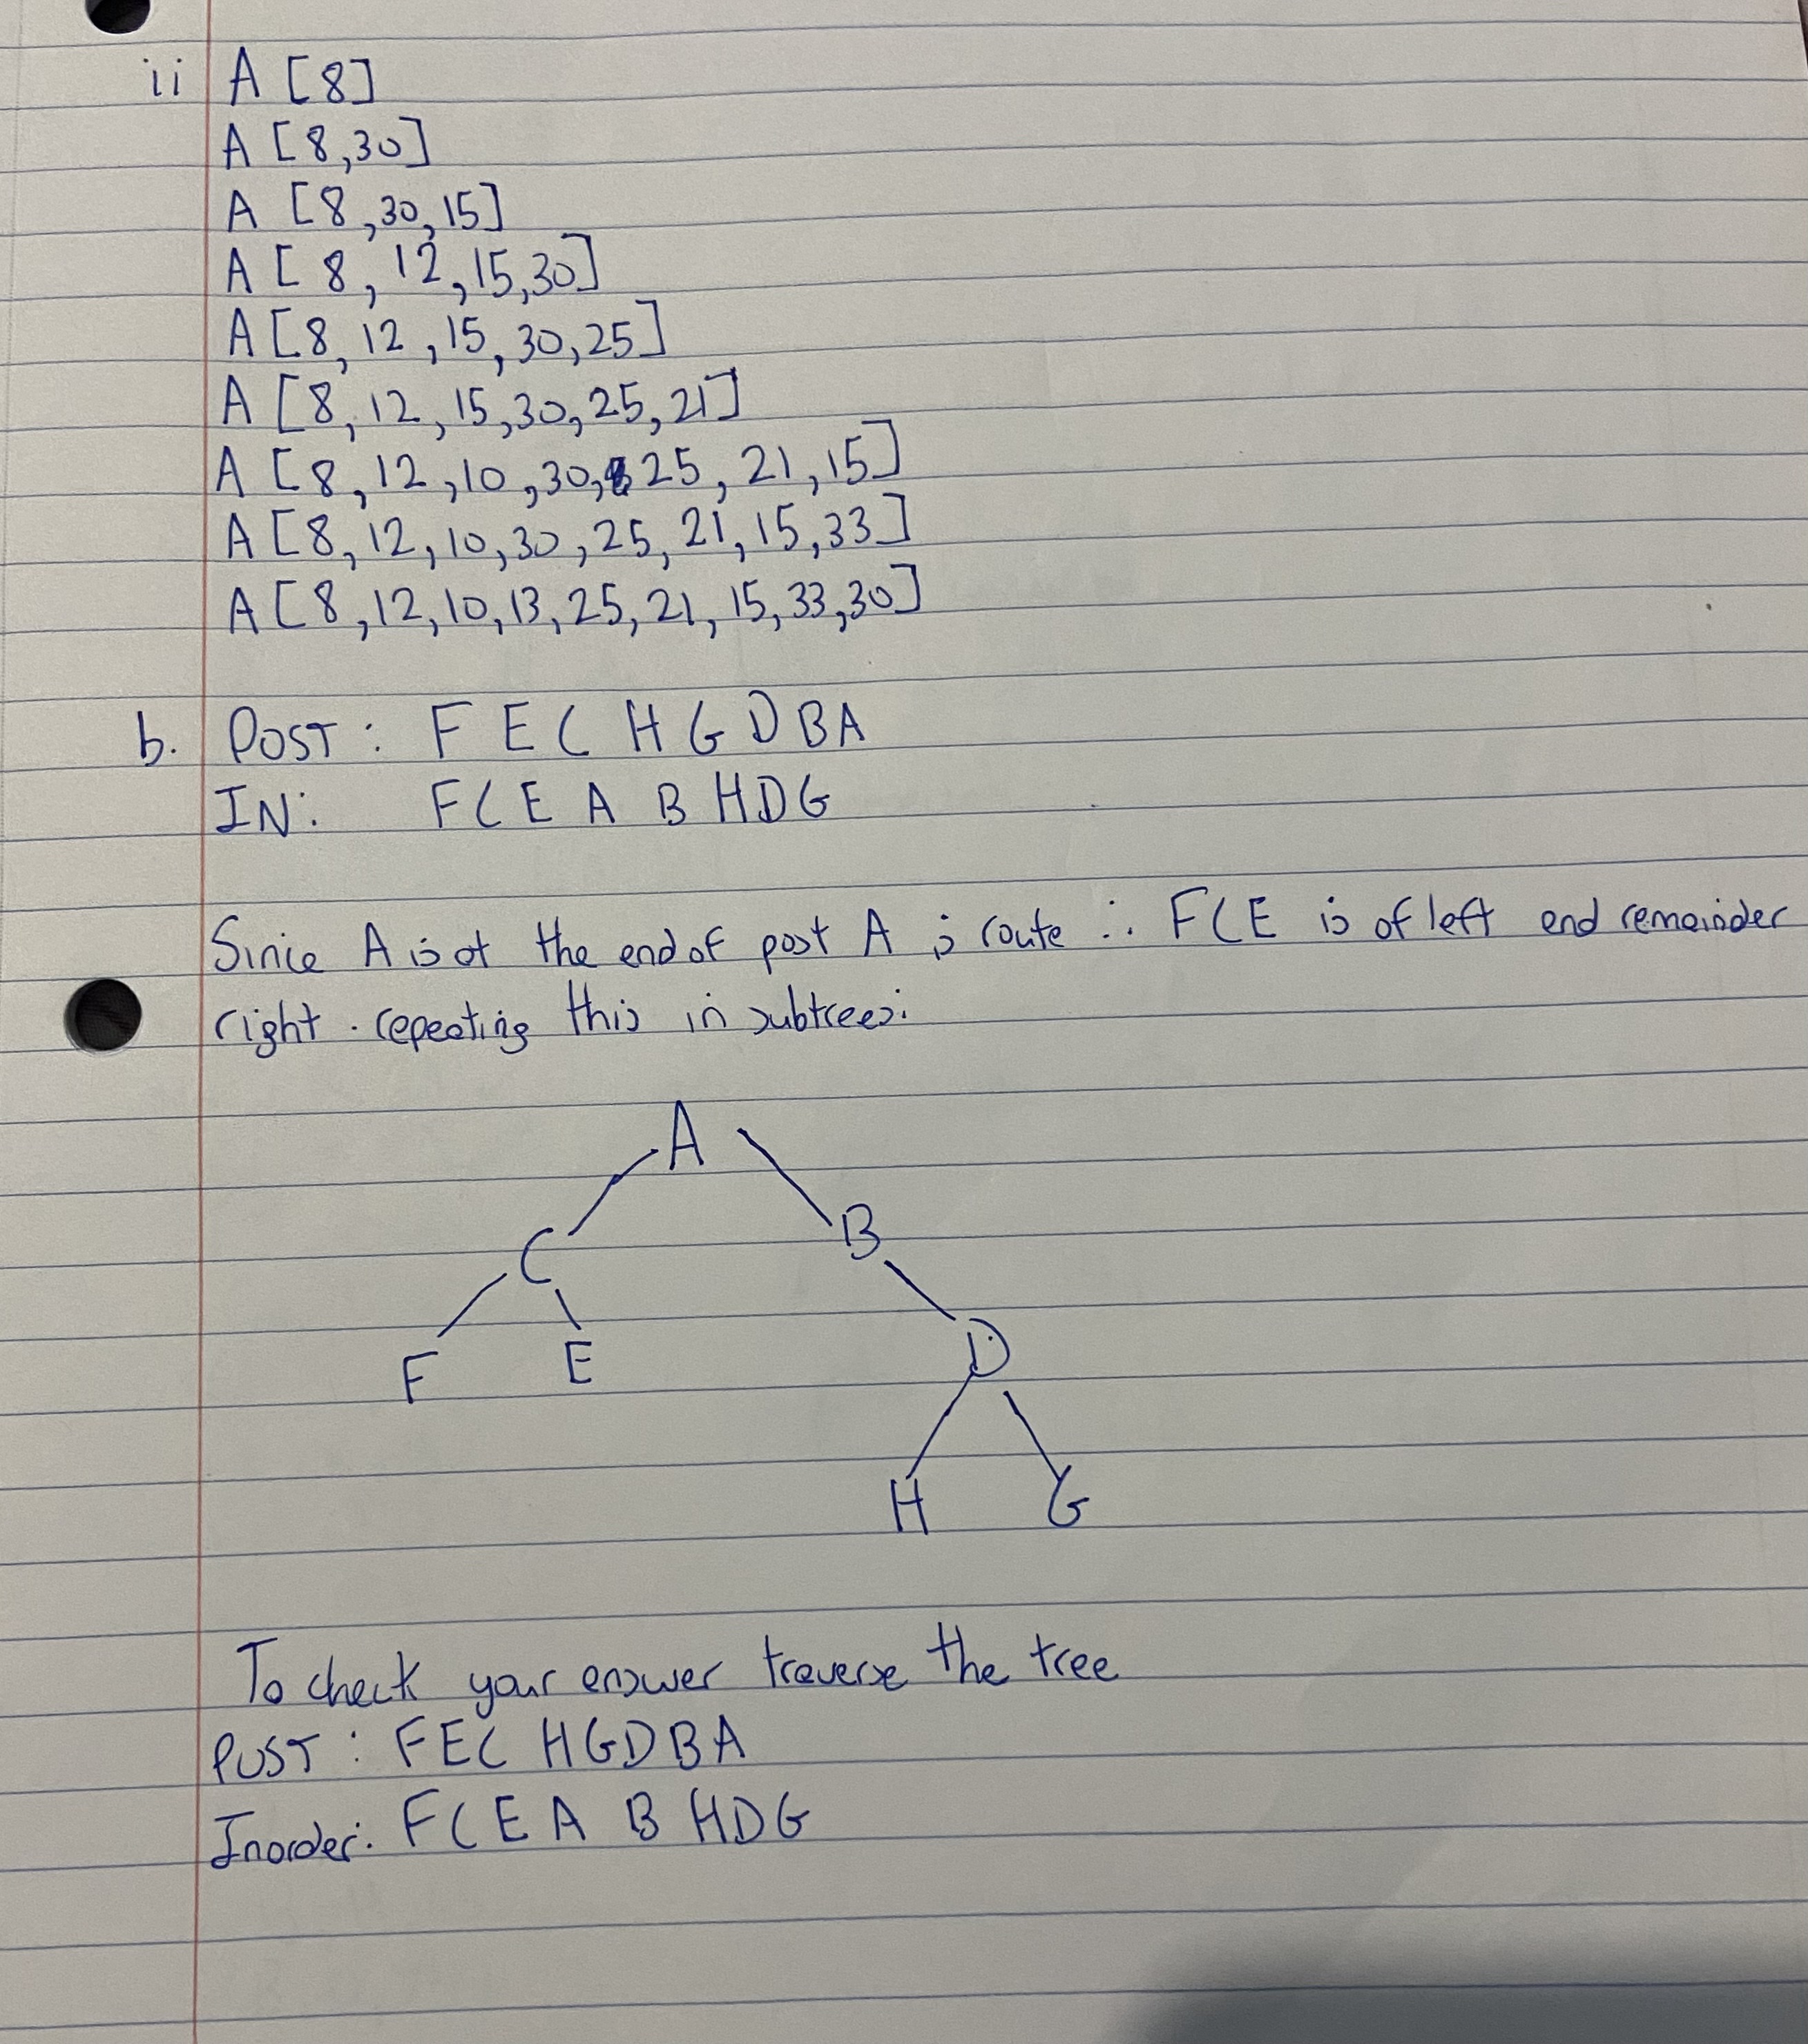 ii A [8]
A [8,30]
A [8,30,15]
A [8, 12,15,30]
A [8,12,15,30,25]
A [8,12,15,30,25,21]
A [8,12,10,30,25,21,15]
A [8,12,10,30,25,21,15,33]
A [8,12,10,13,25,21,15,33,30]
b. POST: F E C H G D B A
IN: F C E A B H D G
Since A is at the end of post A is route ∴ F C E is of left end remainder
right . repeating this in subtrees:
A
B
C
D
F E
H G
To check your answer traverse the tree
POST: FEC HGDBA
Inorder: FCEA B HDG